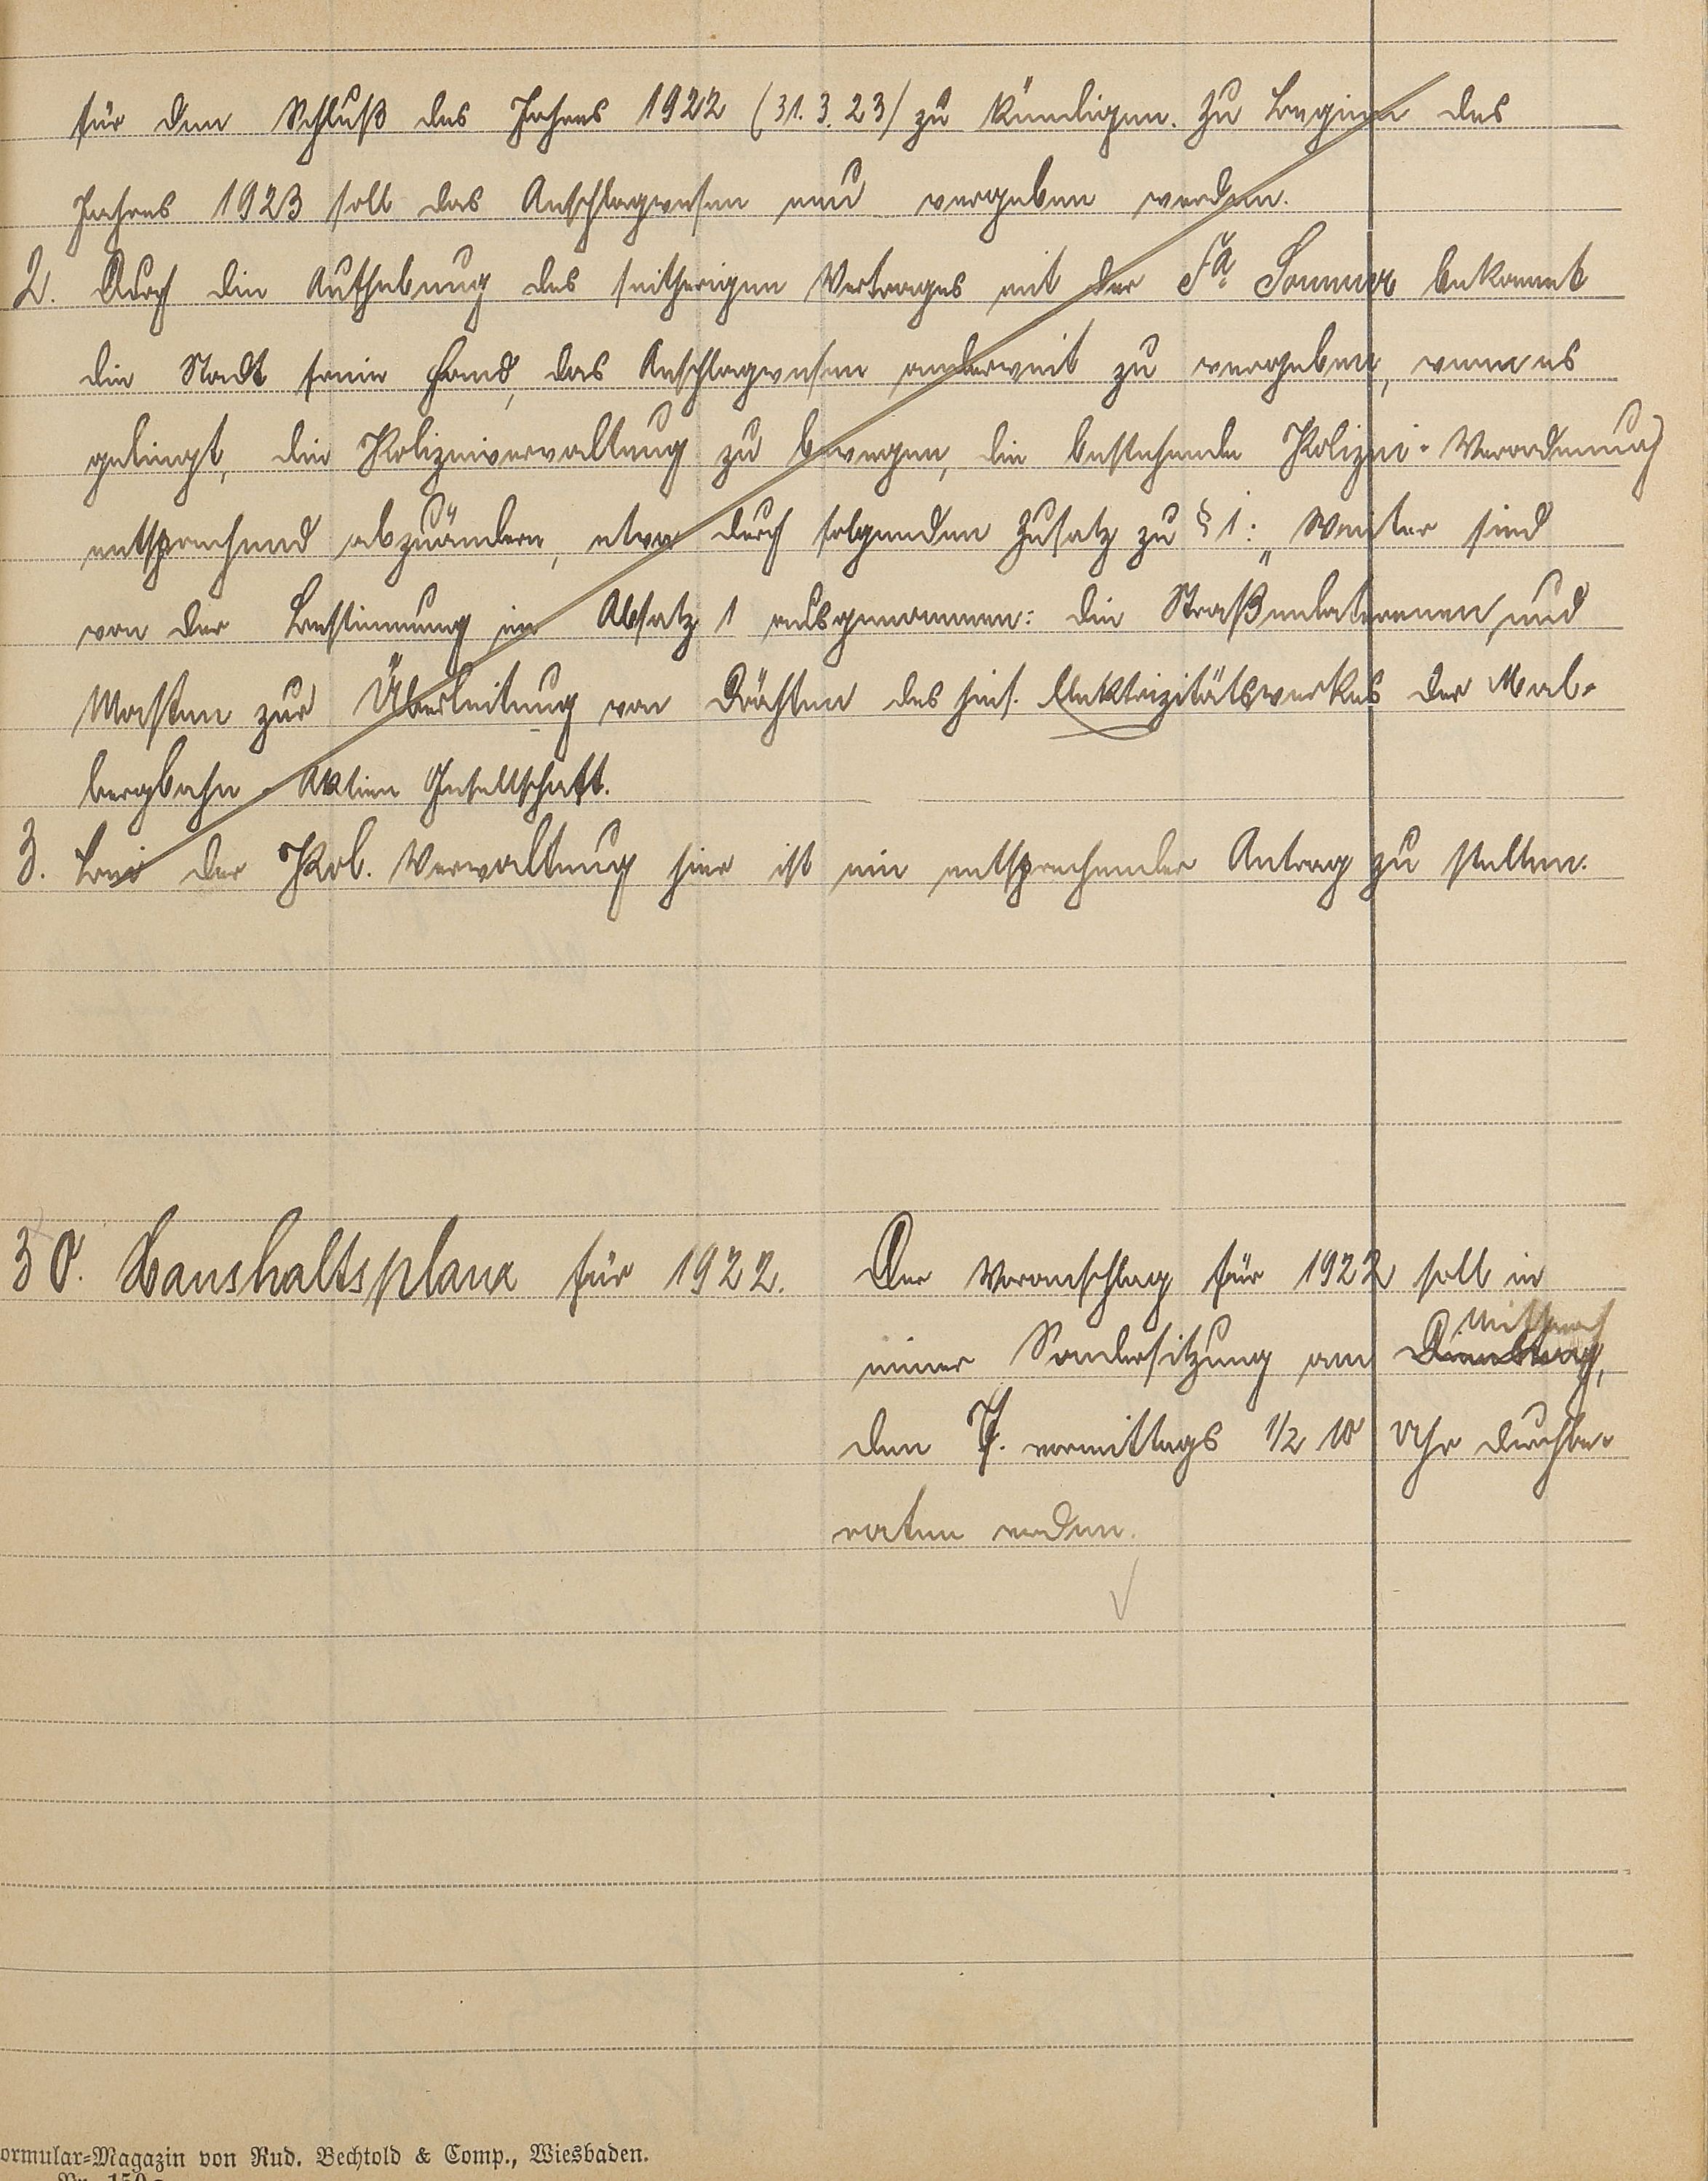 für den Schluß des Jahres 1922 (31.3.23) zu kündigen. Zu Beginn des
Jahres 1923 soll das Anschlagwesen neu vergeben werden.
2. Durch die Aufhebung des seitherigen Vertrages mit der Fa. Sommer bekommt
die Stadt freie Hand, das Anschlagwesen anderweit zu vergeben, wenn es
gelingt, die Polizeiverwaltung zu bewegen, die bestehende Polizei-Verordnung
entsprechend abzuändern, etwa durch folgenden Zusatz zu § 1: „Weiter sind
von der Bestimmung im Absatz 1 ausgenommen: die Straßenlaternen und
Masten zur Überleitung von Drähten des hies. Elektrizitätswerkes der Mal-
bergbahn-Aktien Gesellschaft.
3. Bei der Pol. Verwaltung hier ist ein entsprechender Antrag zu stellen.
30. Haushaltsplan für 1922.
Der Voranschlag für 1922 soll in
Mittwoch
einer Sondersitzung am Dienstag,
den 7. vormittags 1/2 10 Uhr durchbe-
raten werden.
ormular-Magazin von Rud. Bechtold & Comp., Wiesbaden.
Nr. 150